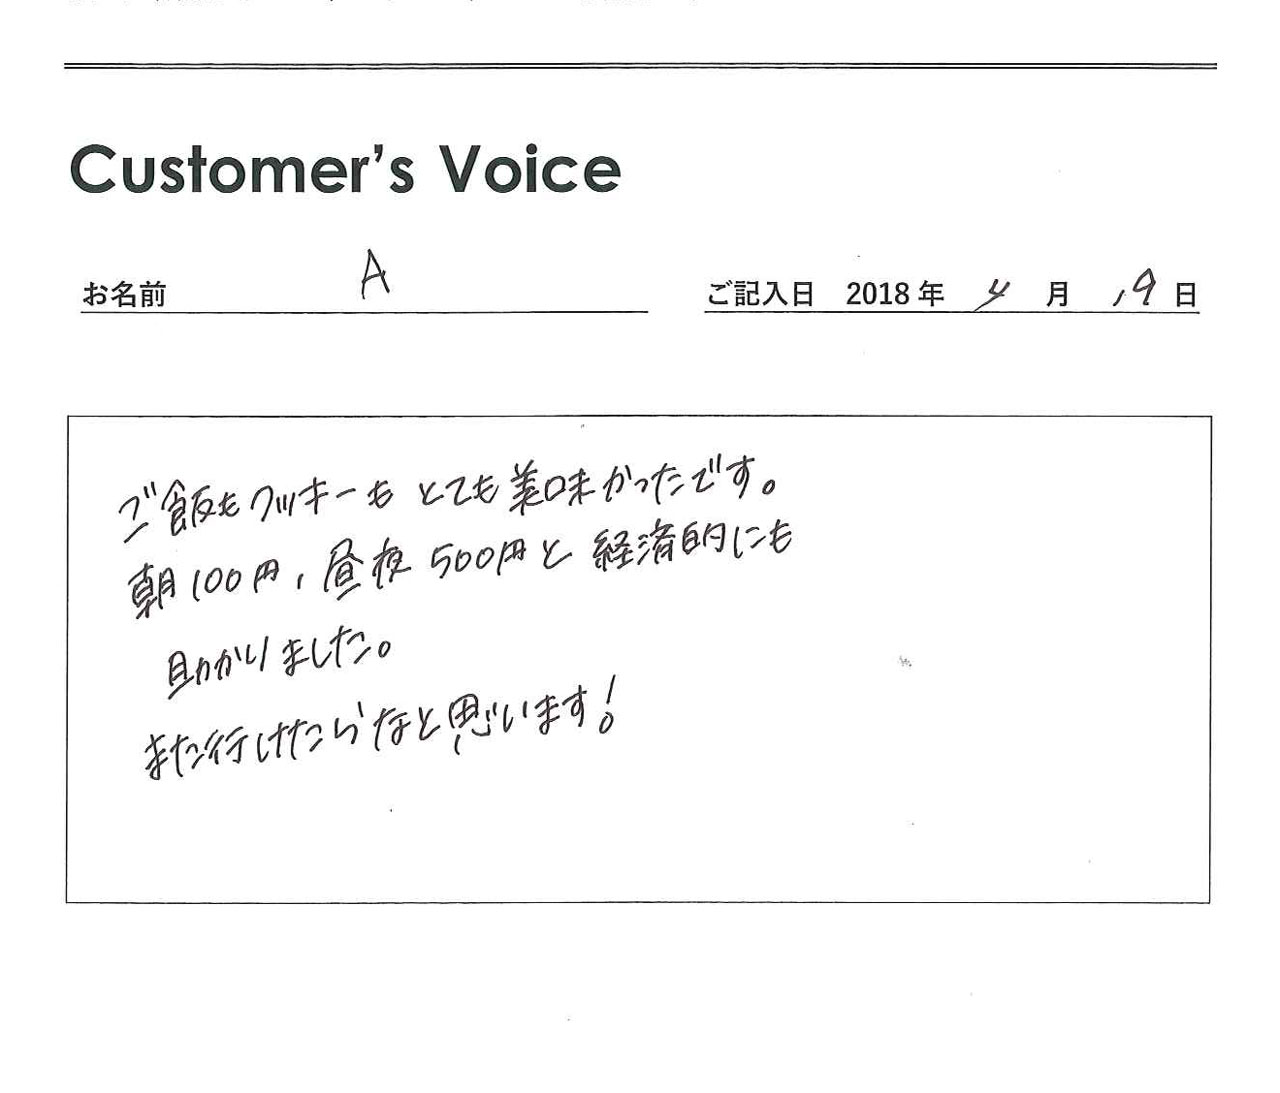 Customer's Voice
お名前 A ご記入日 2018 年 4 月 19 日
ご飯もクッキーもとても美味かったです。
朝100円,昼夜500円と経済的にも
助かりました。
また行けたらなと思います!